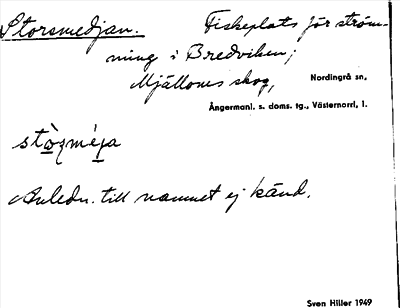 Storsmedjan. Fiskeplats för ström-
ming i Bredviken;
Mjälloms skog, Nordingrå sn,
Ångermanl. s. doms. tg., Västernorrl. l.
Anledn. till namnet ej känd.
Sven Hiller 1949